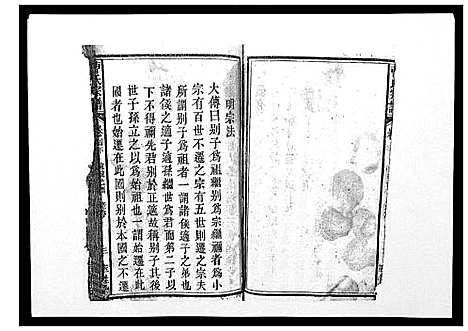 明宗法
大傳曰別子爲祖繼別爲宗繼禰者爲小
宗有百世不遷之宗有五世則遷之宗夫
所謂別子爲祖者一謂諸侯適子之弟也
諸侯之適子適孫繼世爲君而第二子以
下不得禰先君別於正適故稱別子其後
世子孫立之以爲始祖也一謂始遷在此
國者也始遷在此國則別於本國之不遷
氏宗譜